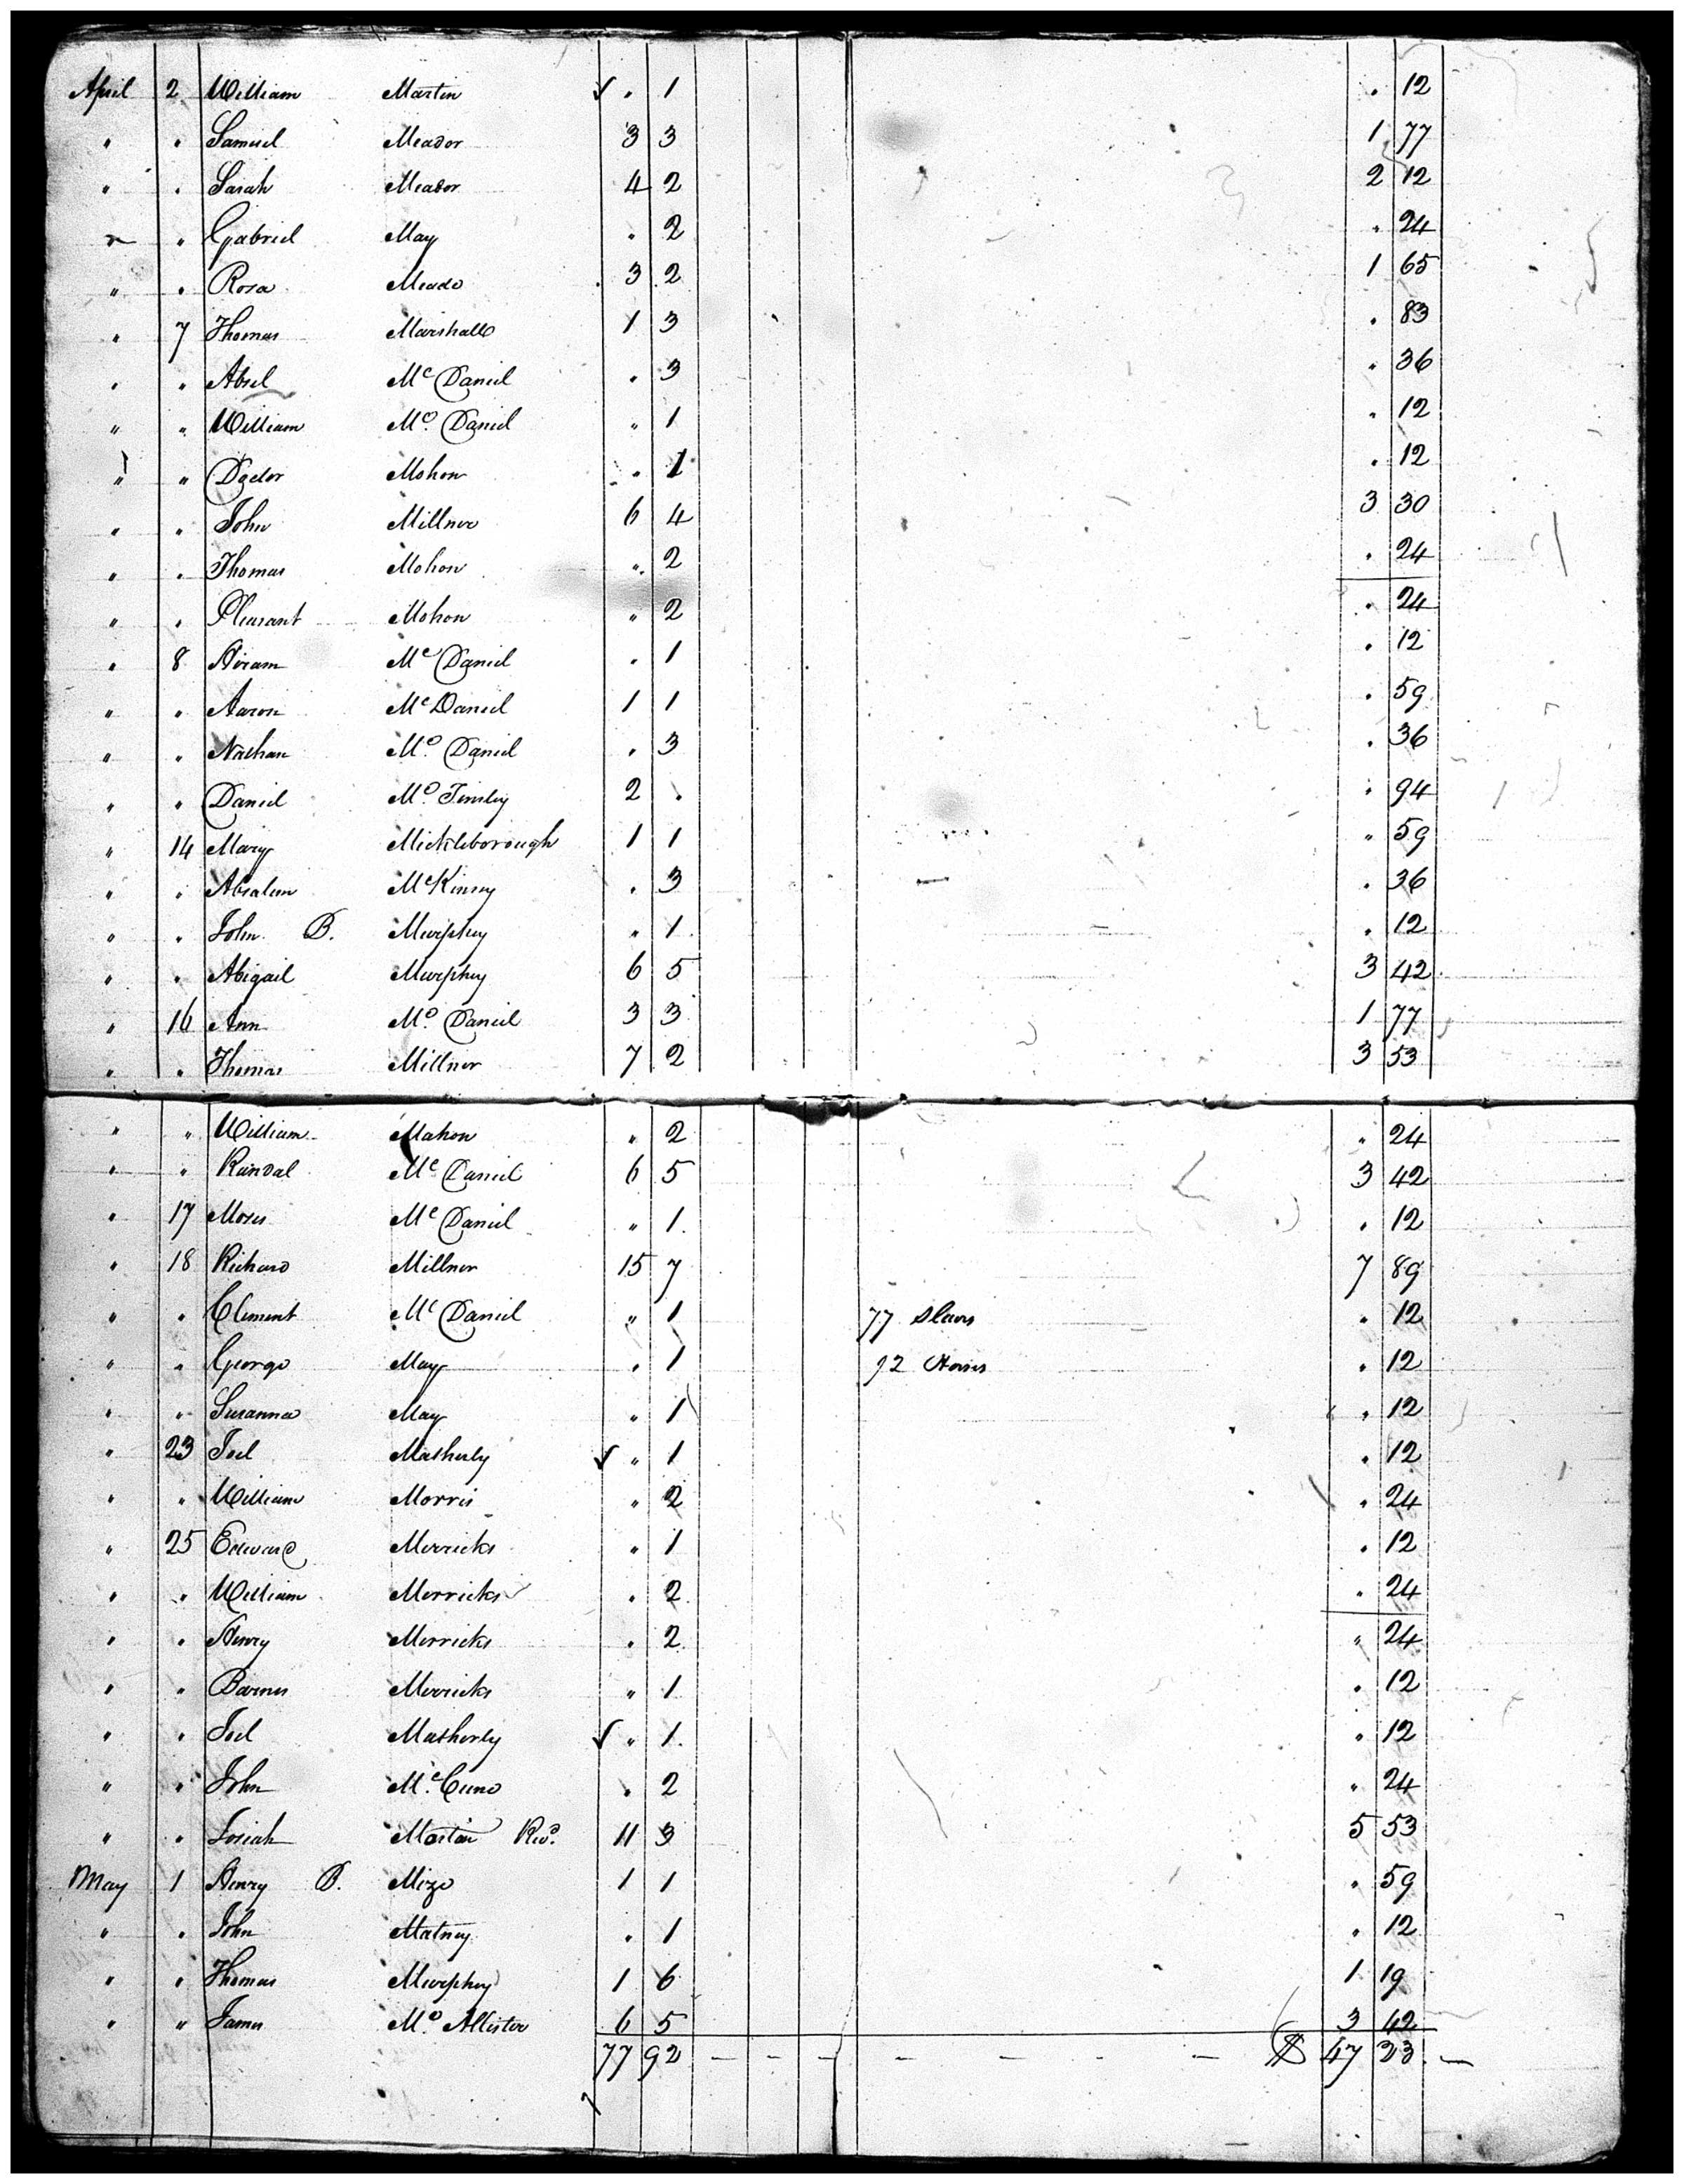 April 2 William Martin ✓ . 1 . 12
" . Samuel Meador 3 3 1 77
" . Sarah Meador 4 2 2 12
" " Gabriel May . 2 . 24
" . Rosa Meade 3 2 1 65
" 7 Thomas Marshall 1 3 . 83
" " Absel McDaniel . 3 . 36
" " William McDaniel " 1 . 12
" " Doctor Mohon " 1 . 12
" " John Millner 6 4 3 30
" " Thomas Mohon " 2 . 24
" " Pleasant Mohon " 2 . 24
" 8 Hiram McDaniel . 1 . 12
" " Aaron McDaniel 1 1 . 59
" " Nathan McDaniel . 3 . 36
" " Daniel McTinsley 2 . . 94
" 14 Mary Mickleborough 1 1 " 59
" . Absalem McKinsey . 3 . 36
" . John B. Murphey " 1 . 12
" . Abigail Murphey 6 5 3 42
" 16 Ann McDaniel 3 3 1 77
" " Thomas Millner 7 2 3 53
" " William Mahon " 2 " 24
" " Randal McDaniel 6 5 3 42
" 17 Moses McDaniel " 1 . 12
" 18 Richard Millner 15 7 7 89
" " Clement McDaniel " 1 77 Slaves . 12
" " George May . 1 92 Horses . 12
" " Susanna May " 1 . 12
" 23 Joel Matherly ✓ " 1 . 12
" " William Morris " 2 . 24
" 25 Edward Merricks " 1 . 12
" " William Merricks . 2 . 24
" " Henry Merricks . 2 " 24
" " Barnes Merricks " 1 . 12
" " Joel Matherly ✓ " 1 " 12
" " John McCune . 2 " 24
" " Josiah Martin Revd. 11 3 5 53
May 1 Henry B. Mize 1 1 . 59
" " John Matney . 1 . 12
" " Thomas Murphey 1 6 1 19
" " James McAllister 6 5 3 42
77 92 — — — — — — — $ 47 23 —